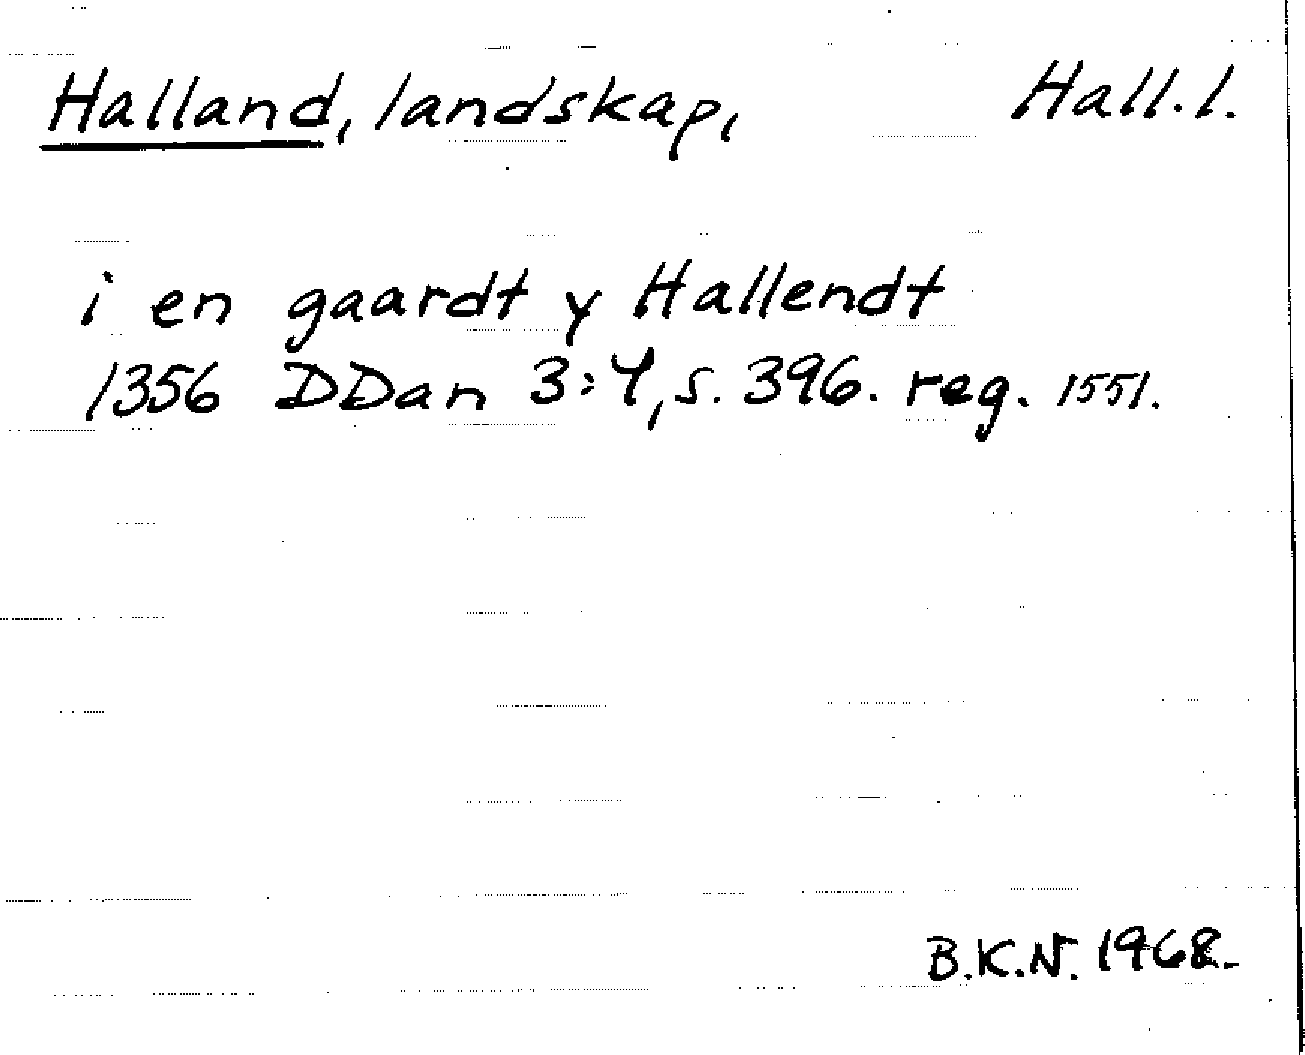 Halland, landskap, Hall. l.
i en gaardt y Hallendt
1356 DDan 3:4, s. 396. reg. 1551.
B.K.N. 1968.